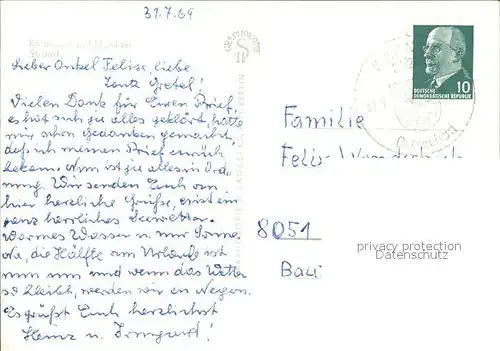 31.7.69
Strand
Lieber Onkel Felix, liebe
Tante Gretel!
Vielen Dank für Euren Brief,
es hat sich ja alles geklärt, hatte
mir schon Gedanken gemacht,
daß ich meinen Brief zurück
bekam. Nun ist ja alles in Ord-
nung. Wir senden Euch von
hier herzliche Grüße, es ist ein
ganz herrliches Seewetter.
Warmes Wasser u. nur Sonne.
Na, die Hälfte vom Urlaub ist
nun um und wenn das Wetter
so bleibt, werden wir zu Negern.
Es grüßt Euch herzlichst
Heinz u. Irmgard!
DEUTSCHE
DEMOKRATISCHE REPUBLIK
10
Familie
Felix
8051
privacy protection
Datenschutz